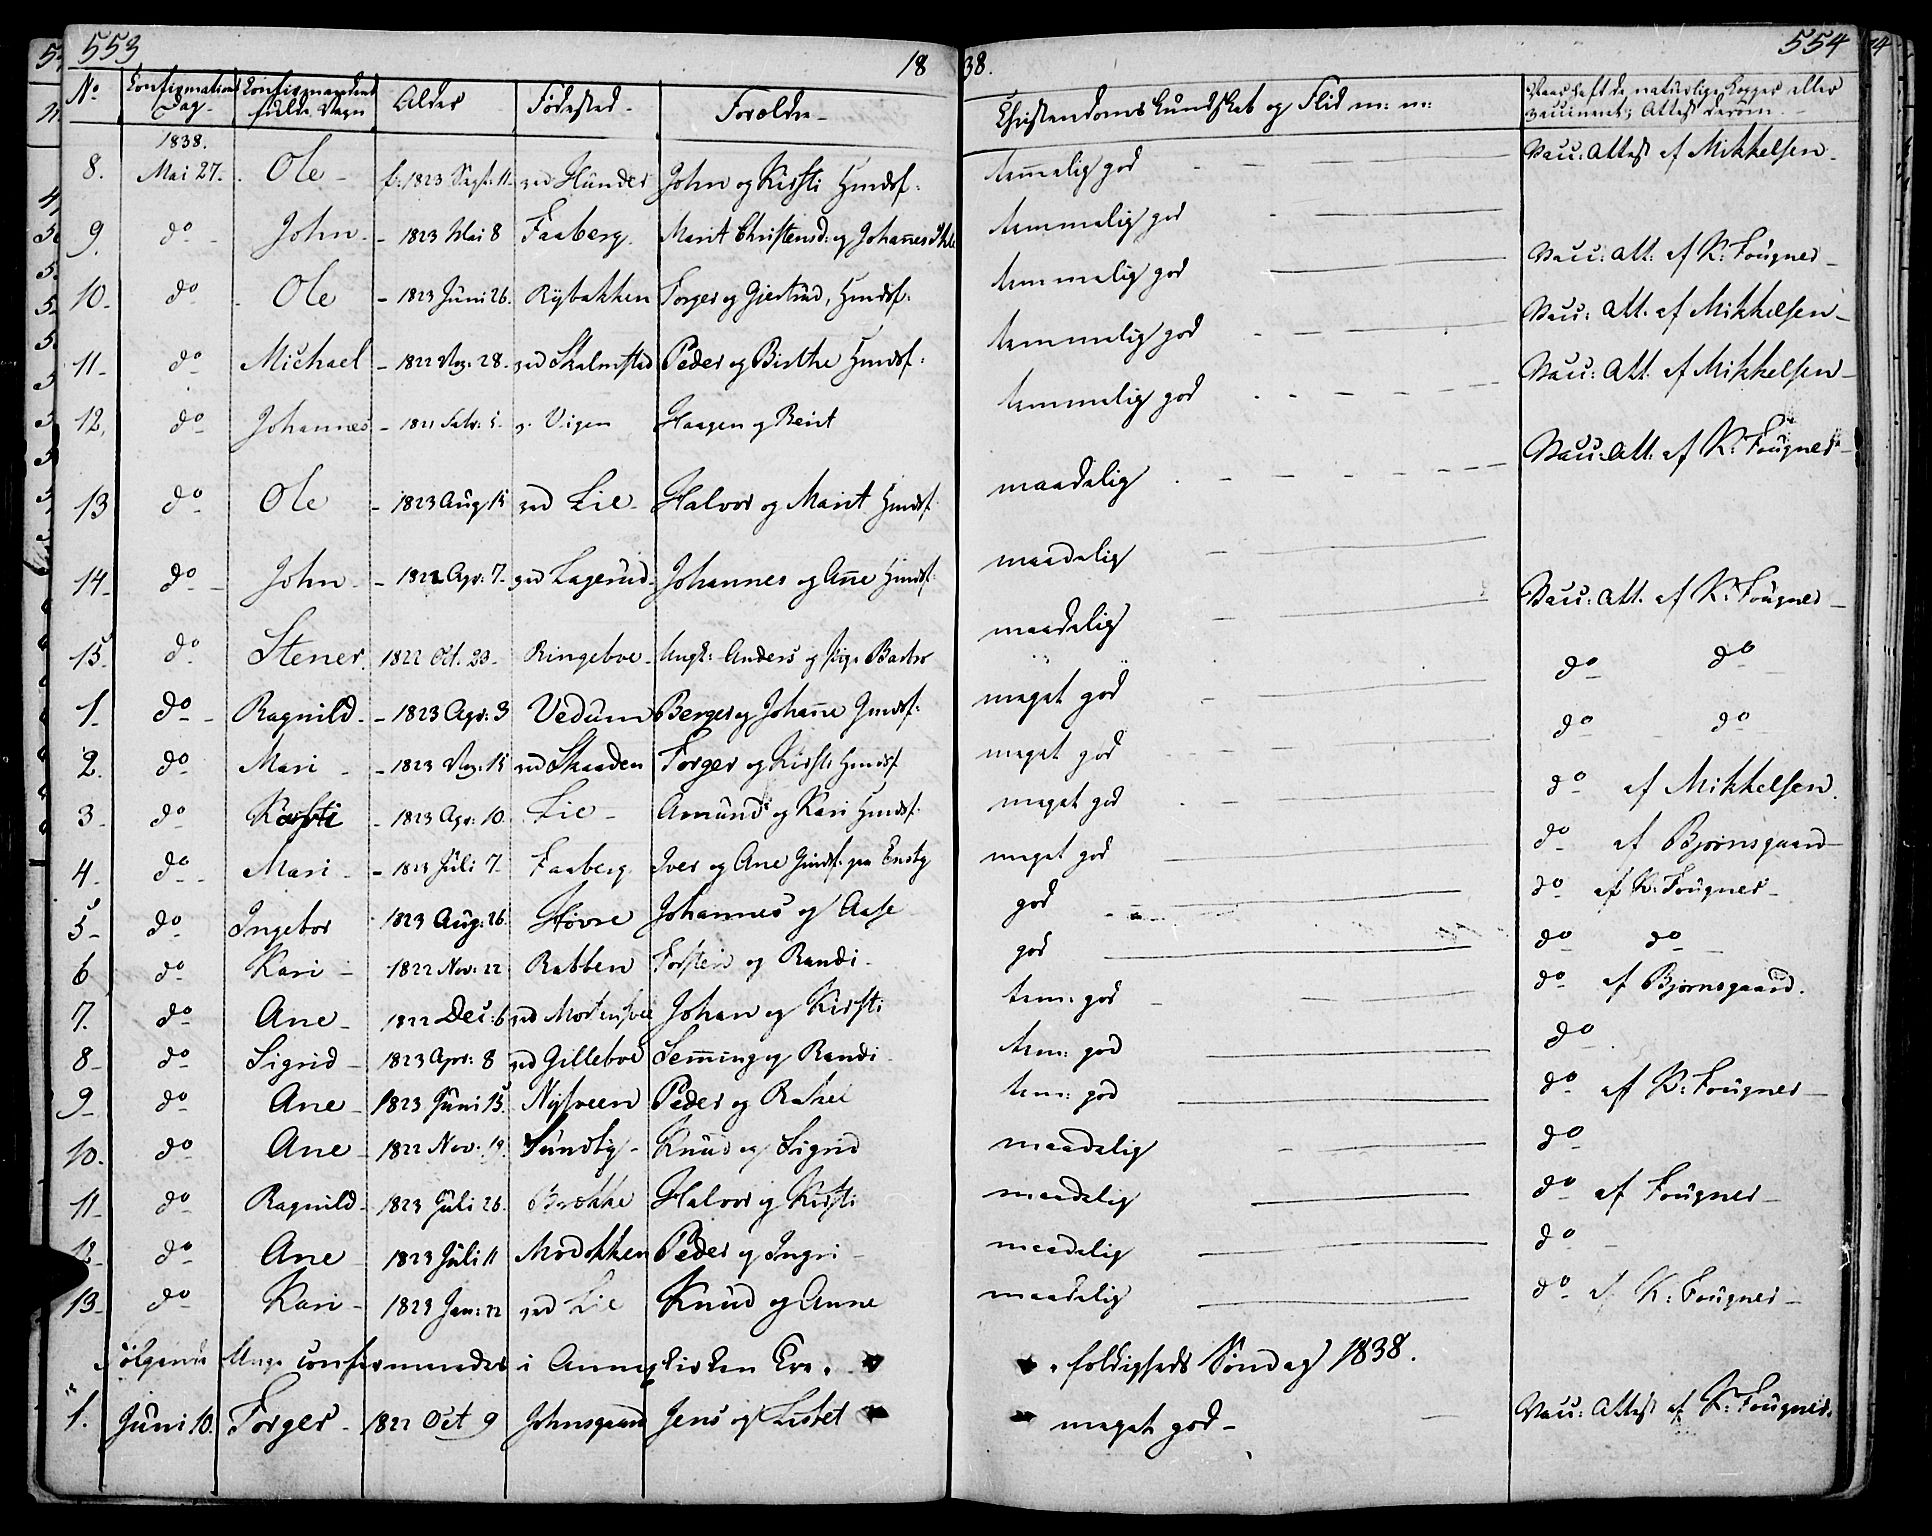 553 18 38. 554
No Confirmations Dag Confirmandens fulde Navn Alder Fødested Forældre Christendoms Kundskab og Flid m: m: havt de naturlige Kopper eller vaccineret; Attest derom
1838.
8. Mai 27. Ole f: 1823 Sept: 11 ved Hunder John og Kirsti Huusf: temmelig god Vacc: Attest af Mikkelsen
9. do John 1823 Mai 8 Faaberg Marit Christensd: og Johannes temmelig god Vacc: Att: af K: Fougner
10 do Ole 1823 Juni 26. Rybakken Torger og Gjertrud, Huusf: temmelig god Vacc: Att. af Mikkelsen
11 do Michael 1822 28 ved Skalmstad Peder og Birthe Huusf: temmelig god Vacc: Att. af Mikkelsen
12, do Johannes Haagen og Berit temmelig god Vacc: Att: af K: Fougner
13 do Ole 1823 Aug 15 ved Lie Halvor og Marit Huusf: maadelig
14 do John 1822 Apr: 7 ved Lagerud Johannes og Ane Huusf: maadelig Vacc: Att. af K: Fougner
15. do Stener 1822 Oct. 23 Ringeboe Ungk: Anders og pige maadelig do do
1 do Ragnild 1823 Apr: 3 Vedum Berger og Johanne Huusf: meget god do do
2. do Mari 1823 15 ved Skaaden Torger og Kirsti Huusf meget god do af Mikkelsen.
3 do 1823 Apr: 10 Lie Amund og Kari Huusf: meget god do af Bjørnsgaard
4 do Mari 1823 Juli 7 Faaberg Iver og Ane Huusf: paa Ensby meget god do af K: Fougner
5 do Ingebor 1823 Aug: 26 Høvre Johannes og Aase god do do
6 do Kari 1822 Nov: 22 Rabben Torstein og Randi god do af Bjørnsgaard.
7. do Ane 1822 Dec: 6 ved Johan og Kirsti tem: god do
8 do Sigrid 1823 Apr: 8 ved Gilleboe Semming og Randi tem: god do af K: Fougner
9 do Ane 1823 Juni 15. Nysveen Peder og Rakel tem: god do
10. do Ane 1822 Nov: 19. Sundby Knud og Sigrid maadelig do af Fougner
11 do Ragnild 1823 Juli 26. Brække Halvor og Kirsti maadelig do
12 do Ane 1823 Juli 11 Peder og Ingri maadelig do af K: Fougner
13 do Kari 1823 Jan: 22 ved Lie Knud og Anne maadelig
Følgende Unge confirmeredes i Annexkirken foldigheds Søndag 1838.
1. Juni 10. Torger 1822 Oct 9 Johnsgaard Jens og Lisbet meget god Vacc: Attest af K: Fougner.